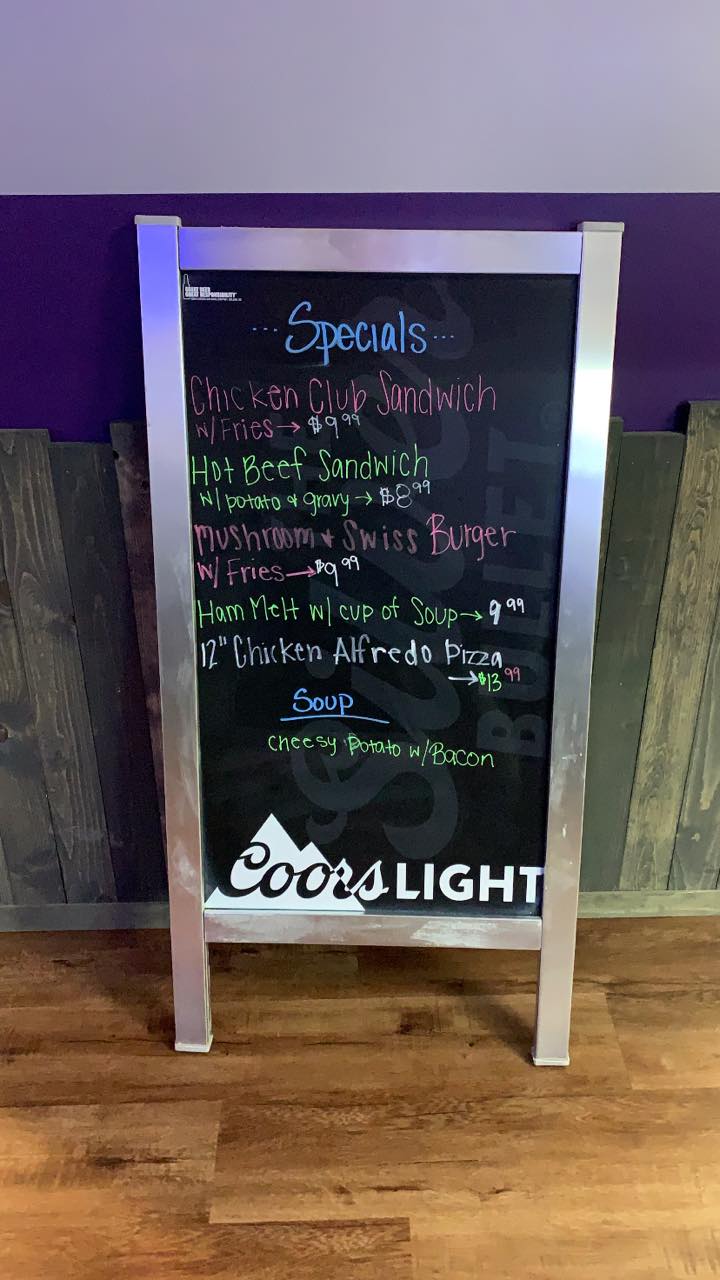 GREAT BEER
GREAT RESPONSIBILITY
... Specials ...
Chicken Club Sandwich
w/ Fries → $9.99
Hot Beef Sandwich
w/ potato & gravy → $8.99
Mushroom & Swiss Burger
w/ Fries → $9.99
Ham Melt w/ cup of Soup → 9.99
12" Chicken Alfredo Pizza
→ $13.99
Soup
Cheesy Potato w/ Bacon
Silver
BULLET
Coors LIGHT